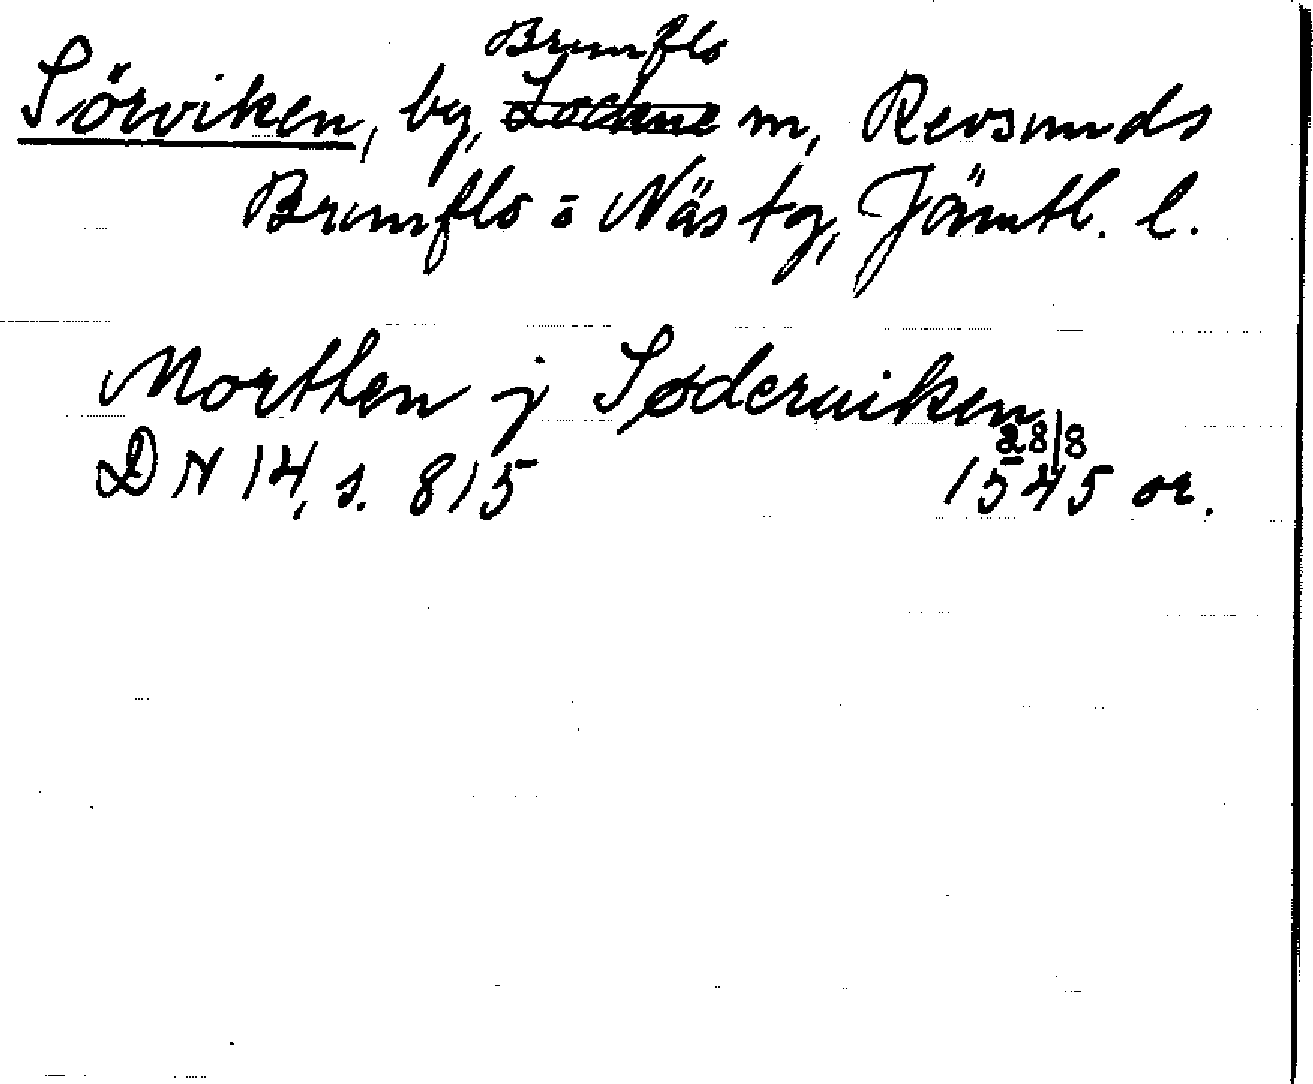 Brunflo
Sörviken, by, Lockne sn, Revsunds
Brunflo o Näs tg, Jämtl. l.
Mortthen j Søderuiken
28/8
DN 14, s. 815 1545 or.